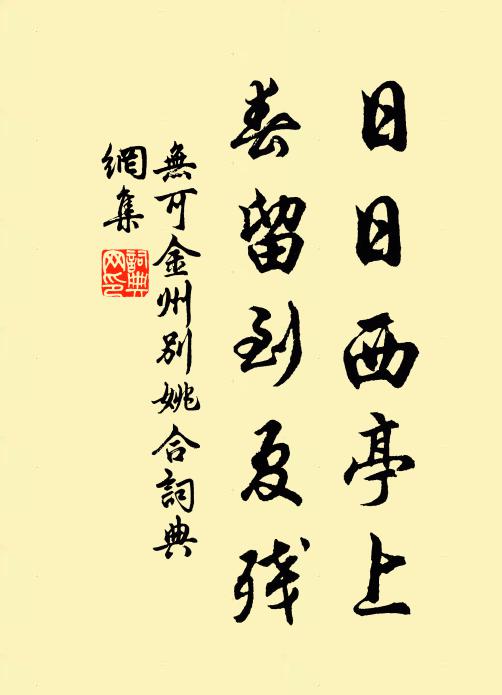 日日西亭上
春留到夏残
無可金州别姚合詞典
網集
詞典
网印